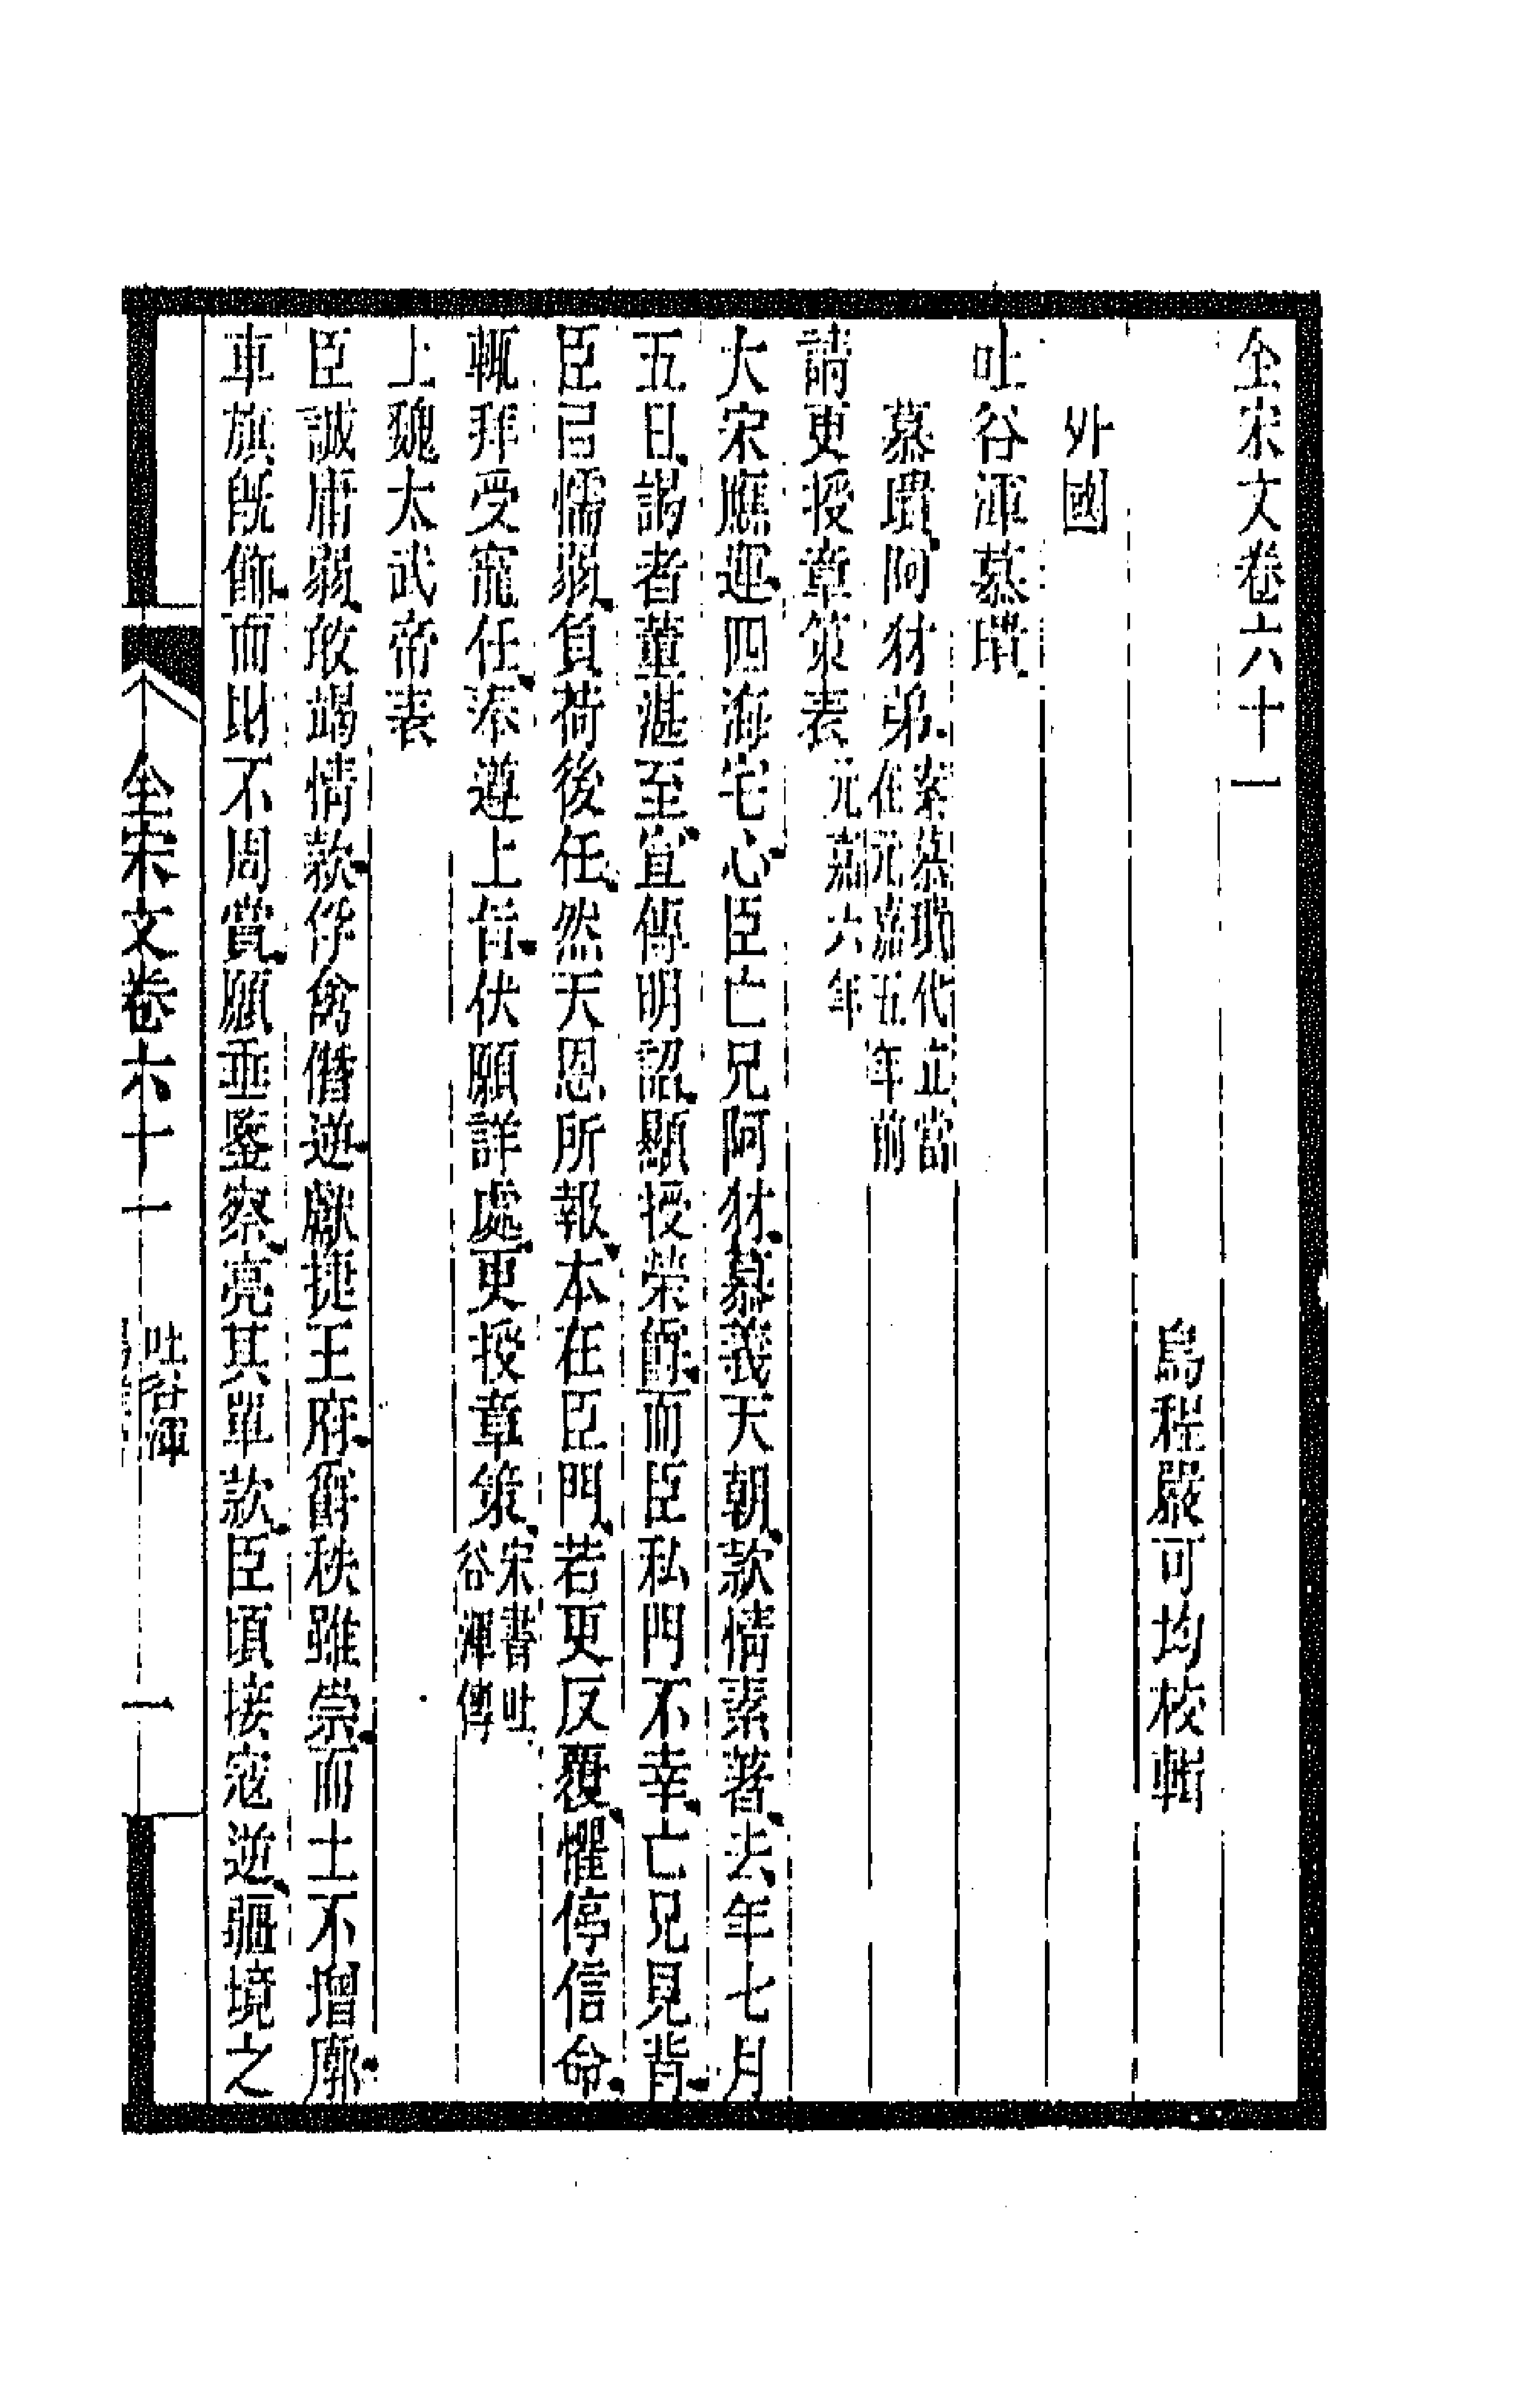 全宋文卷六十一
烏程嚴可均校輯
外國
吐谷渾慕璝
慕璝阿犲弟案慕璝代立當在元嘉五年前
請更授章策表元嘉六年
大宋應運四海宅心臣亡兄阿犲慕義天朝款情素著去年七月
五日謁者董湛至宣傳明詔顯授榮爵而臣私門不幸亡兄見背
臣㠯懦弱負荷後任然天恩所報本在臣門若更反覆懼停信命
輒拜受寵任奉遵上旨伏願詳處更授章策宋書吐谷渾傳
上魏太武帝表
臣誠庸弱敢竭情款俘禽僭逆獻捷王府爵秩雖崇而土不增廓
車旗旣飾而財不周賞願垂鑒察亮其單款臣頃接寇逆疆境之
全宋文卷六十一 吐谷渾 一